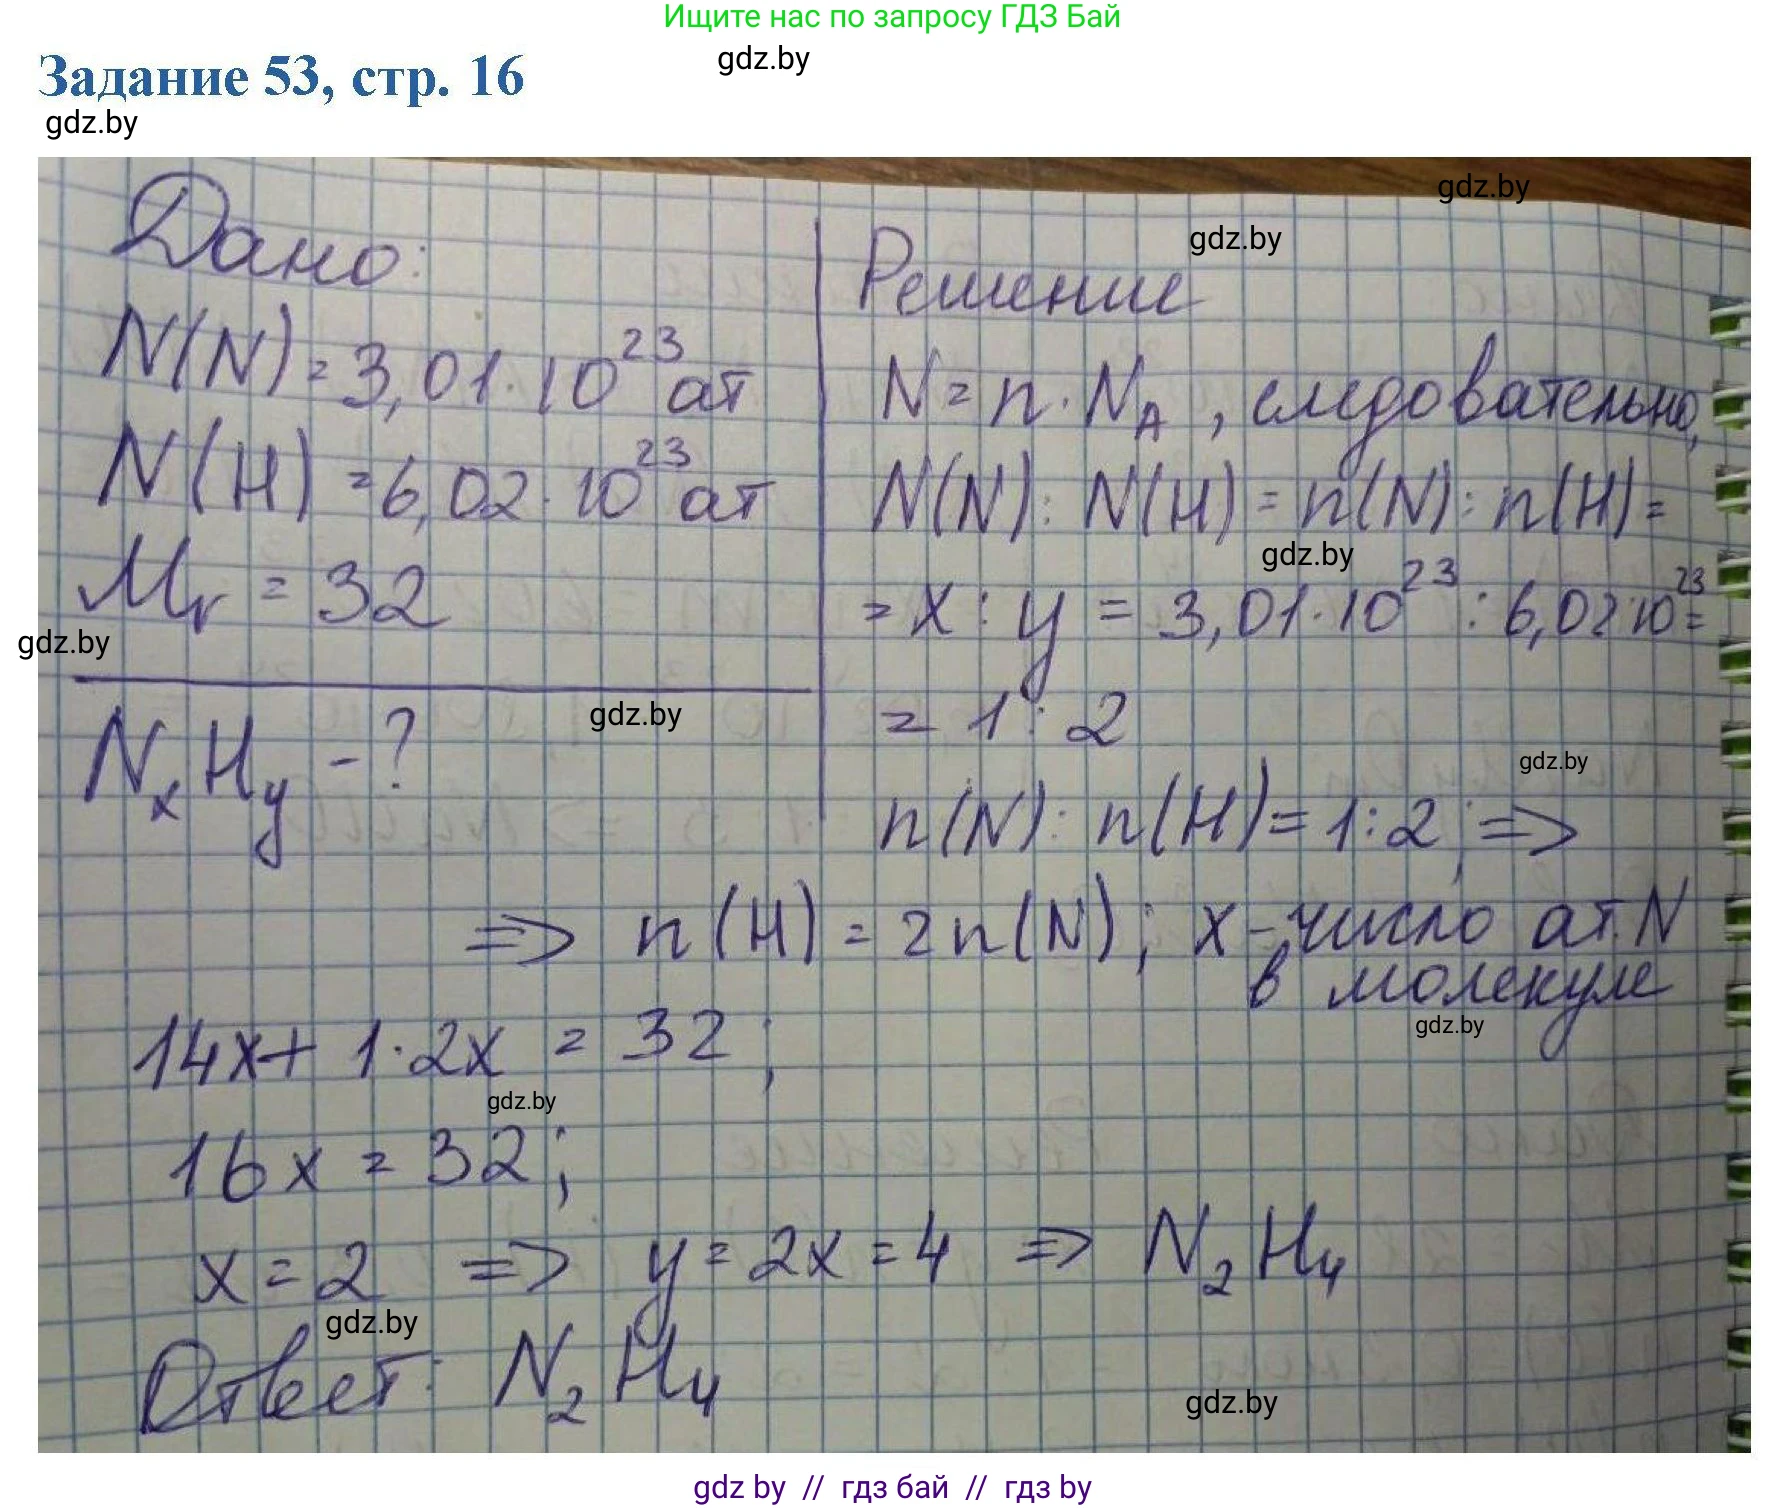 Ищите нас по запросу ГДЗ Бай
gdz.by
Задание 53, стр. 16
gdz.by
gdz.by
Дано:
N(N) = 3,01·10²³ ат
N(H) = 6,02·10²³ ат
Mr = 32
gdz.by
NₓHᵧ - ?
gdz.by
gdz.by
Решение
N = n·N_A, следовательно,
N(N) : N(H) = n(N) : n(H) =
gdz.by
= x : y = 3,01·10²³ : 6,02·10²³ =
= 1 : 2
gdz.by
n(N) : n(H) = 1:2; =>
=> n(H) = 2n(N); x - число ат. N
в молекуле
gdz.by
14x + 1·2x = 32;
gdz.by
16x = 32;
x = 2 => y = 2x = 4 => N₂H₄
gdz.by
Ответ: N₂H₄
gdz.by
gdz by // гдз бай // гдз by